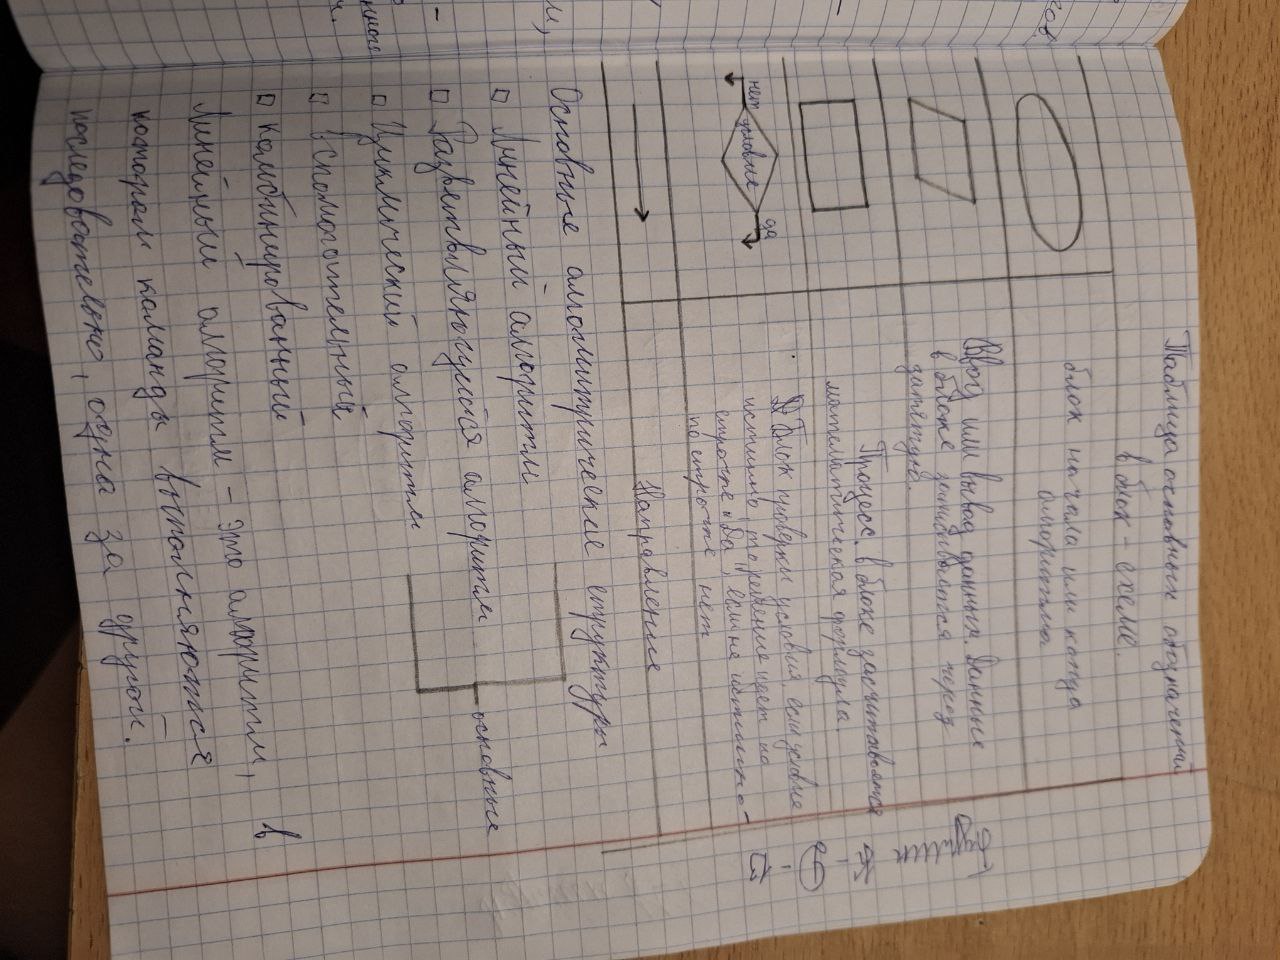 Таблица основных обозначений
в блок-схеме.
блок начала или конца
алгоритма
Ввод или вывод данных. Данные
в блоке записываются через
запятую.
Процесс. в блоке записывается
математическая формула.
нет
условие
да
Блок проверки условия. если условие
истинно, то решение идет по
строчке "да", если не истинно -
по строчке нет
Направление
Основные алгоритмические структуры
Линейный алгоритм
Разветвляющийся алгоритм
основные
Циклический алгоритм
вспомогательный
комбинированный
Линейный алгоритм - это алгоритм, в
котором команды выполняются
последовательно, одна за другой.